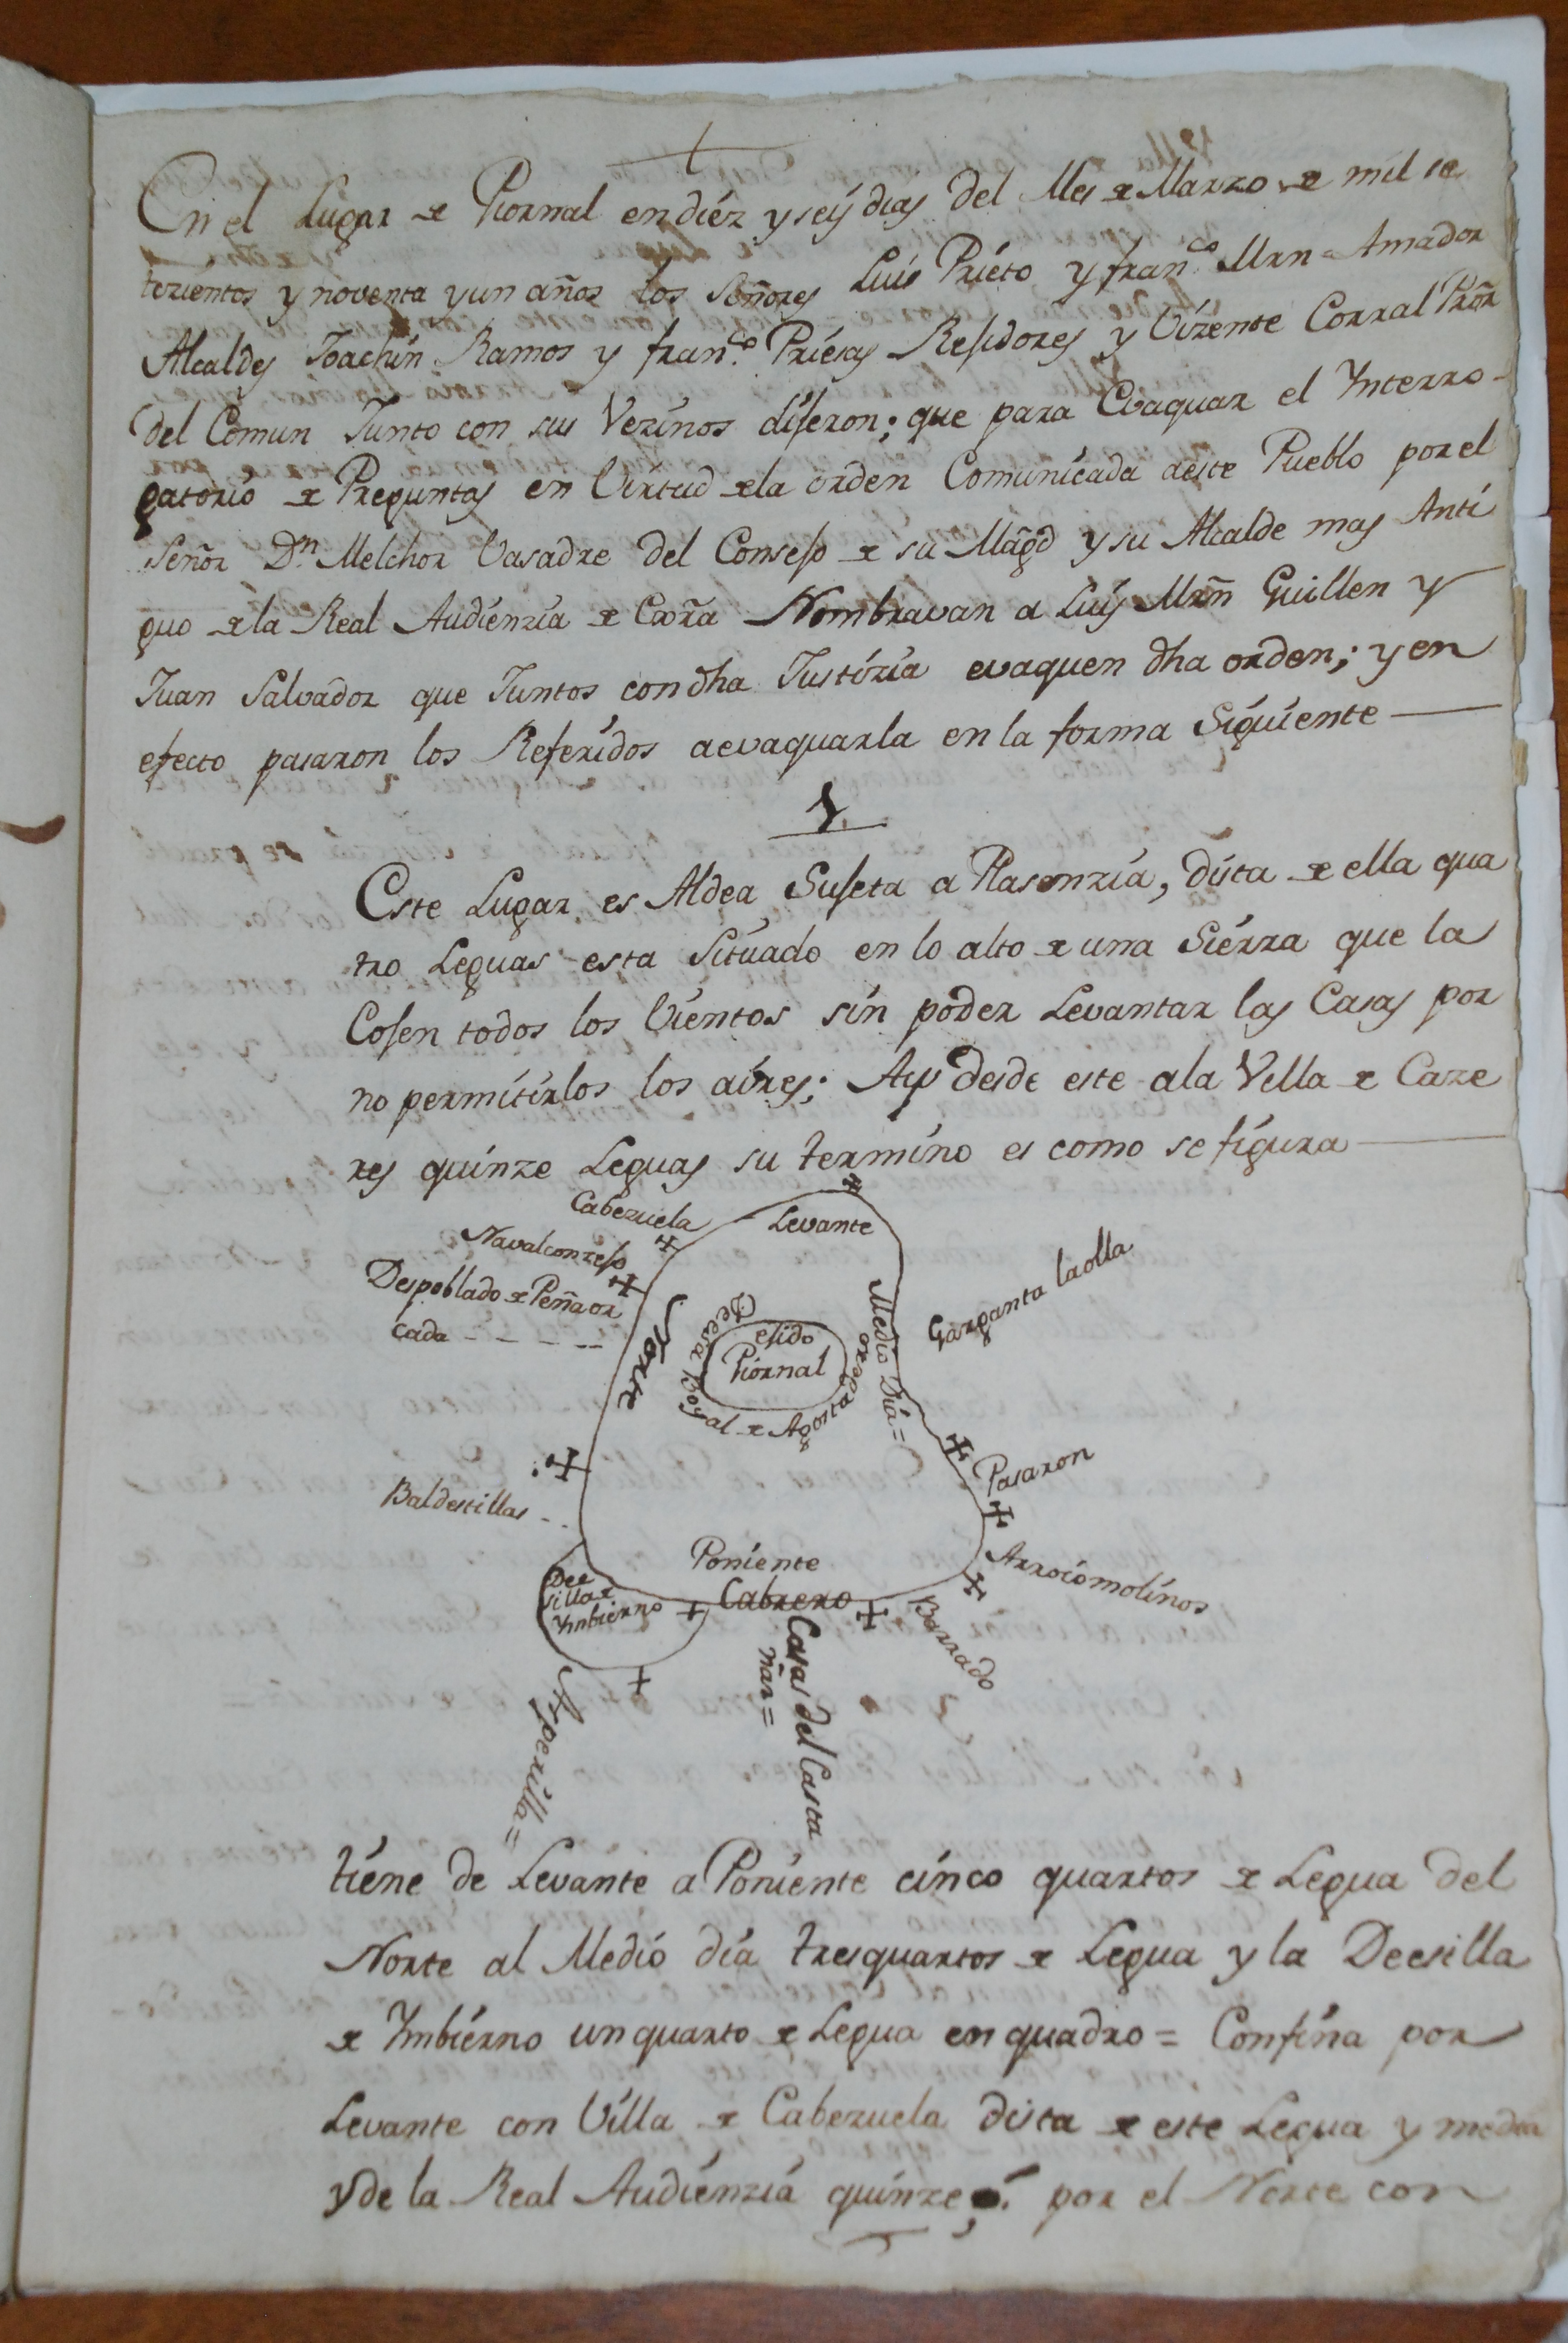 En el Lugar de Piornal en diéz y seÿ dias del Mes de Marzo de mil se
tezientos y noventa y un años los Señores Luis Prieto y fran.co Mrn Amador
Alcaldes Joachin Ramos y fran.co Priesas Rejidores y Vizente Corral Pror̃
del Comun Junto con sus Vezinos dijeron; que para Evaquar el Ynterro-
gatorio de Preguntas en Virtud de la orden Comunicada aeste Pueblo por el
Señor D.n Melchor Vasadre del Consejo de su Mag̃d y su Alcalde mas Anti
guo de la Real Audienzia de Exrã Nombravan a Luis Mrñ Guillen y
Juan Salvador que Juntos con dha Justizia evaquen dha orden; y en
efecto pasaron los Referidos a evaquarla en la forma Siguiente
1.
Este Lugar es Aldea Sujeta a Plasenzia, dista de ella qua
tro Leguas esta Situado en lo alto de una Siérra que la
Cojen todos los Vientos sin poder Levantar las Casas por
no permitirlos los aires; Ay desde este ala Villa de Caze
res quinze Leguas su termino es como se figura
Cabezuela
Levante
Navalconzejo
Despoblado de Peña or
cada
Garganta laolla
Norte
Medio Dia=
exido
Piornal
Deesa Boyal de Agostadero
Pasaron
Baldestillas
Arroiomolinos
Poniente
Cabrero
Dee
silla de
Ynbierno
Barrado
Casas del Casta
ñar=
Asperilla=
tiene de Levante a Poniente cinco quartos de Legua del
Norte al Medio dia tres quartos de Legua y la Deesilla
de Ynbiérno un quarto de Legua en quadro = Confina por
Levante con Villa de Cabezuela dista de este Legua y media
y de la Real Audienzia quinze; por el Norte con